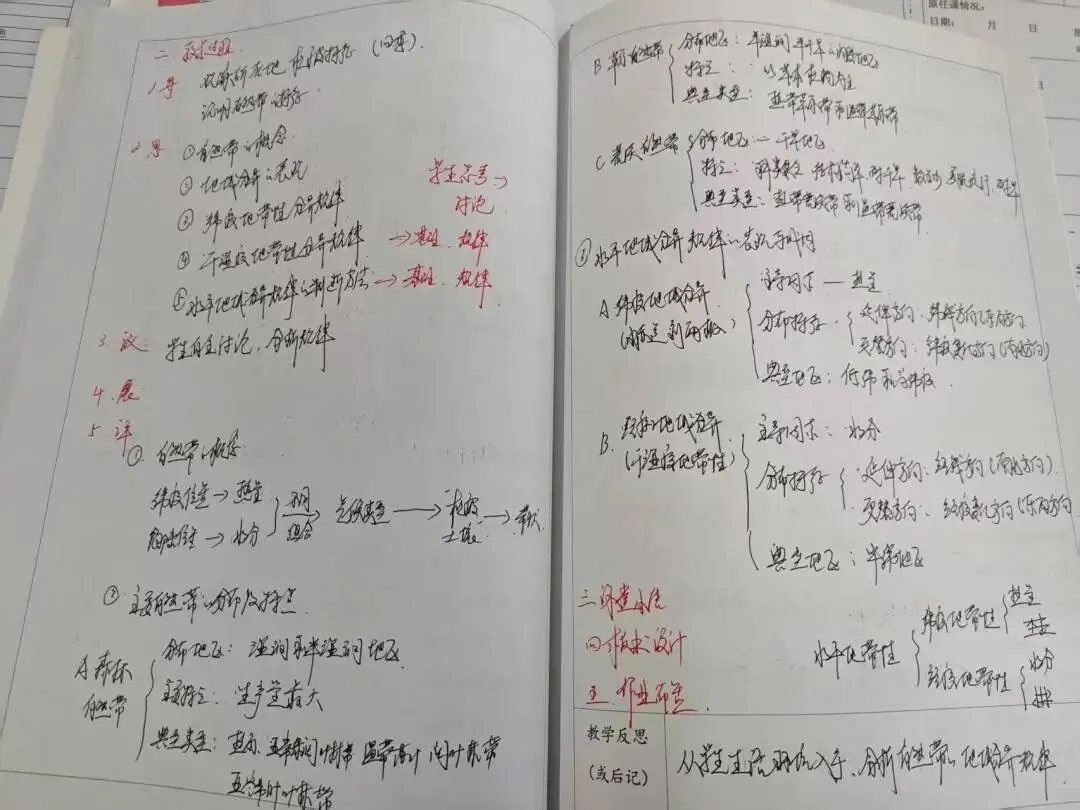 二、教学过程
1.导 (回答).
2.思 ①自然带的概念
②地域分异的表现
③纬度地带性分异规律
学生思考→
讨论
④干湿度地带性分异规律 →基础、规律
⑤水平地域分异规律的判断方法→基础、规律
3.议: 学生自主讨论,分析规律
4.展:
5.评
①自然带的概念
纬度位置→热量
海陆位置→水分
不同
组合
气候类型→植被
土壤→带状
②主要自然带的分布及特点
A森林
自然带
分布地区:湿润和半湿润地区
主要特点:生产量最大
典型类型:
B草原自然带
分布地区:半湿润 半干旱的内陆地区
特点:以草本植物为主
典型类型:热带草原带和温带草原带
C荒漠自然带
分布地区:干旱地区
特点:
典型类型:热带荒漠带和温带荒漠带
③水平地域分异规律的表现与成因
A纬度地域分异
(由赤道到两极)
主导因素——热量
分布特点
延伸方向:纬线方向(东西方向)
更替方向:纬度变化方向(南北方向)
典型地区:低纬和高纬度
B.经度地域分异
(干湿度地带性)
主导因素:水分
分布特点
延伸方向:经线方向(南北方向)
更替方向:经度变化方向(东西方向)
典型地区:中纬地区
三.课堂小结
四.板书设计
五.作业布置
水平地带性
纬度地带性
热量
经度地带性
水分
教学反思
(或后记)
从学生生活 入手、分析自然带的地域分异规律
原任课情况:
日期: 月 日